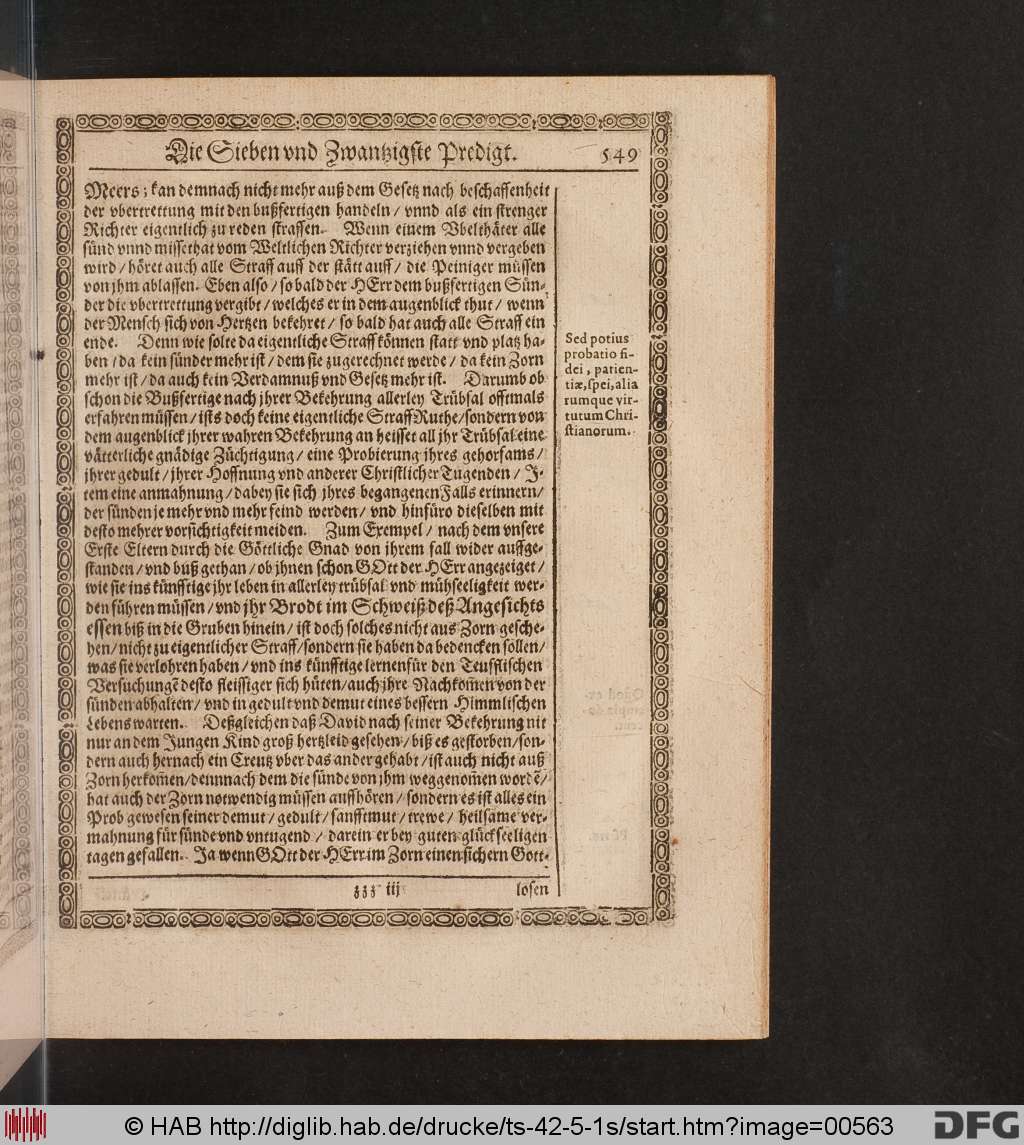 Die Sieben vnd Zwantzigste Predigt. 549
Meers; kan demnach nicht mehr auß dem Gesetz nach beschaffenheit
der vbertrettung mit den bußfertigen handeln / vnnd als ein strenger
Richter eigentlich zu reden straffen. Wenn einem Vbelthäter alle
sünd vnnd missethat vom Weltlichen Richter verziehen vnnd vergeben
wird / höret auch alle Straff auff der stätt auff / die Peiniger müssen
von jhm ablassen. Eben also / so bald der HErr dem bußfertigen Sün-
der die vbertrettung vergibt / welches er in dem augenblick thut / wenn
der Mensch sich von Hertzen bekehret / so bald hat auch alle Straff ein
ende. Denn wie solte da eigentliche Straff können statt vnd platz ha-
ben / da kein sünder mehr ist / dem sie zugerechnet werde / da kein Zorn
mehr ist / da auch kein Verdamnuß vnd Gesetz mehr ist. Darumb ob
schon die Bußfertige nach jhrer Bekehrung allerley Trübsal offtmals
erfahren müssen / ists doch keine eigentliche StraffRuthe / sondern von
dem augenblick jhrer wahren Bekehrung an heisset all jhr Trübsal eine
vätterliche gnädige Züchtigung / eine Probierung jhres gehorsams /
jhrer gedult / jhrer Hoffnung vnd anderer Christlicher Tugenden / J-
tem eine anmahnung / dabey sie sich jhres begangenen Falls erinnern /
der sünden je mehr vnd mehr feind werden / vnd hinfüro dieselben mit
desto mehrer vorsichtigkeit meiden. Zum Exempel / nach dem vnsere
Erste Eltern durch die Göttliche Gnad von jhrem fall wider auffge-
standen / vnd buß gethan / ob jhnen schon GOtt der HErr angezeiget /
wie sie ins künfftige jhr leben in allerley trübsal vnd mühseeligkeit wer-
den führen müssen / vnd jhr Brodt im Schweiß deß Angesichts
essen biß in die Gruben hinein / ist doch solches nicht aus Zorn gesche-
hen / nicht zu eigentlicher Straff / sondern sie haben da bedencken sollen /
was sie verlohren haben / vnd ins künfftige lernen für den Teufflischen
Versuchungē desto fleissiger sich hüten / auch jhre Nachkom̃en von der
sünden abhalten / vnd in gedult vnd demut eines bessern Himmlischen
Lebens warten. Deßgleichen daß David nach seiner Bekehrung nit
nur an dem Jungen Kind groß hertzleid gesehen / biß es gestorben / son-
dern auch hernach ein Creutz vber das ander gehabt / ist auch nicht auß
Zorn herkom̃en / dennnach dem die sünde von jhm weggenom̃en wordē /
hat auch der Zorn notwendig müssen auffhören / sondern es ist alles ein
Prob gewesen seiner demut / gedult / sanfftmut / trewe / heilsame ver-
mahnung für sünde vnd vntugend / darein er bey guten glückseeligen
tagen gefallen. Ja wenn GOtt der HErr im Zorn einen sichern Gott-
zzz iij losen
Sed potius
probatio fi-
dei, patien-
tiæ, spei, alia
rumque vir-
tutum Chri-
stianorum.
© HAB http://diglib.hab.de/drucke/ts-42-5-1s/start.htm?image=00563
DFG